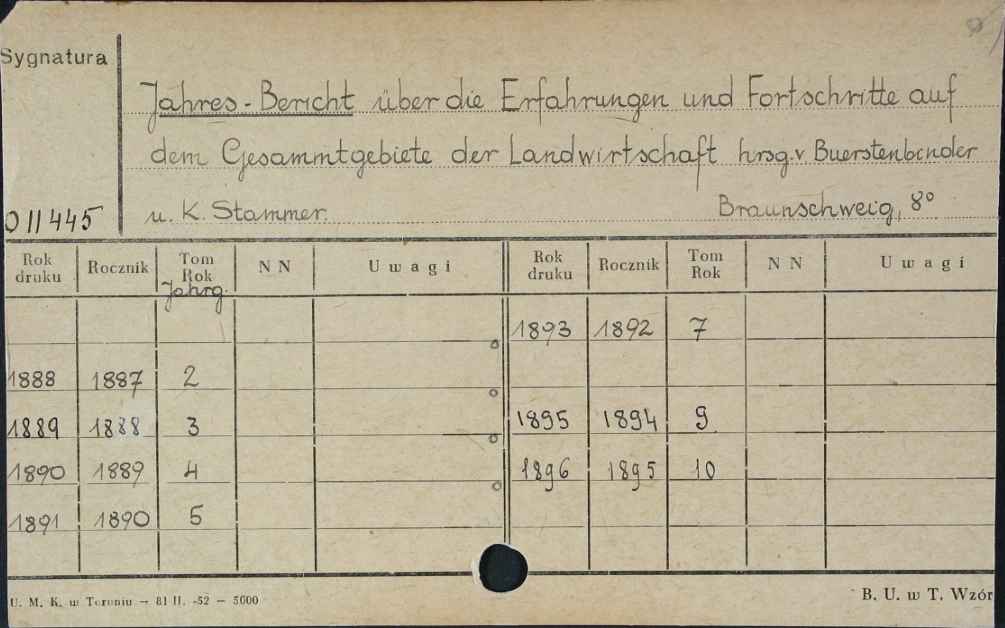 Sygnatura
Jahres-Bericht über die Erfahrungen und Fortschritte auf
dem Gesammtgebiete der Landwirtschaft hrsg.v Buerstenbinder
011445 u. K. Stammer. Braunschweig, 8°
Rok druku Rocznik Tom Rok Jahrg. NN Uwagi Rok druku Rocznik Tom Rok NN Uwagi
1893 1892 7
1888 1887 2
1889 1888 3 1895 1894 9
1890 1889 4 1896 1895 10
1891 1890 5
U. M. K. w Toruniu — 81 II. -52 — 5000 B. U. w T. Wzór